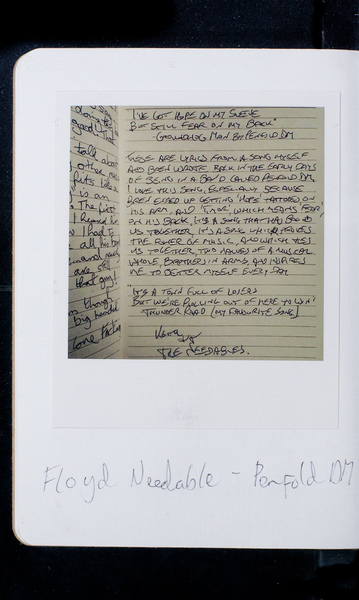 "I'VE GOT HOPE ON MY SLEEVE
BUT STILL FEAR ON MY BACK"
- GROUNDHOG MAN BY PENFOLD DM
THESE ARE LYRICS FROM A SONG MYSELF
AND BEN WROTE BACK IN THE EARLY DAYS
OF BEING IN A BAND CALLED PENFOLD DM,
I LOVE THIS SONG, ESPECIALLY BECAUSE
BEN ENDED UP GETTING 'HOPE' TATTOOED ON
HIS ARM, AND WHICH MEANS FEAR
ON HIS BACK, IT'S A SONG THAT HAS BOUND
US TOGETHER, IT'S A SONG WHICH PROVES
THE POWER OF MUSIC, AND WHICH TIES
US TOGETHER, TWO HALVES OF A MUSICAL
WHOLE, BROTHERS IN ARMS, AND INSPIRES
ME TO BETTER MYSELF EVERY DAY
IT'S A TOWN FULL OF LOSERS
BUT WE'RE PULLING OUT OF HERE TO WIN
THUNDER ROAD (MY FAVOURITE SONG)
THE NEEDABLES.
good! That
talk about
other
is an
The first
I had to
all his
that guy!
big headed
Floyd Needable - Penfold DM